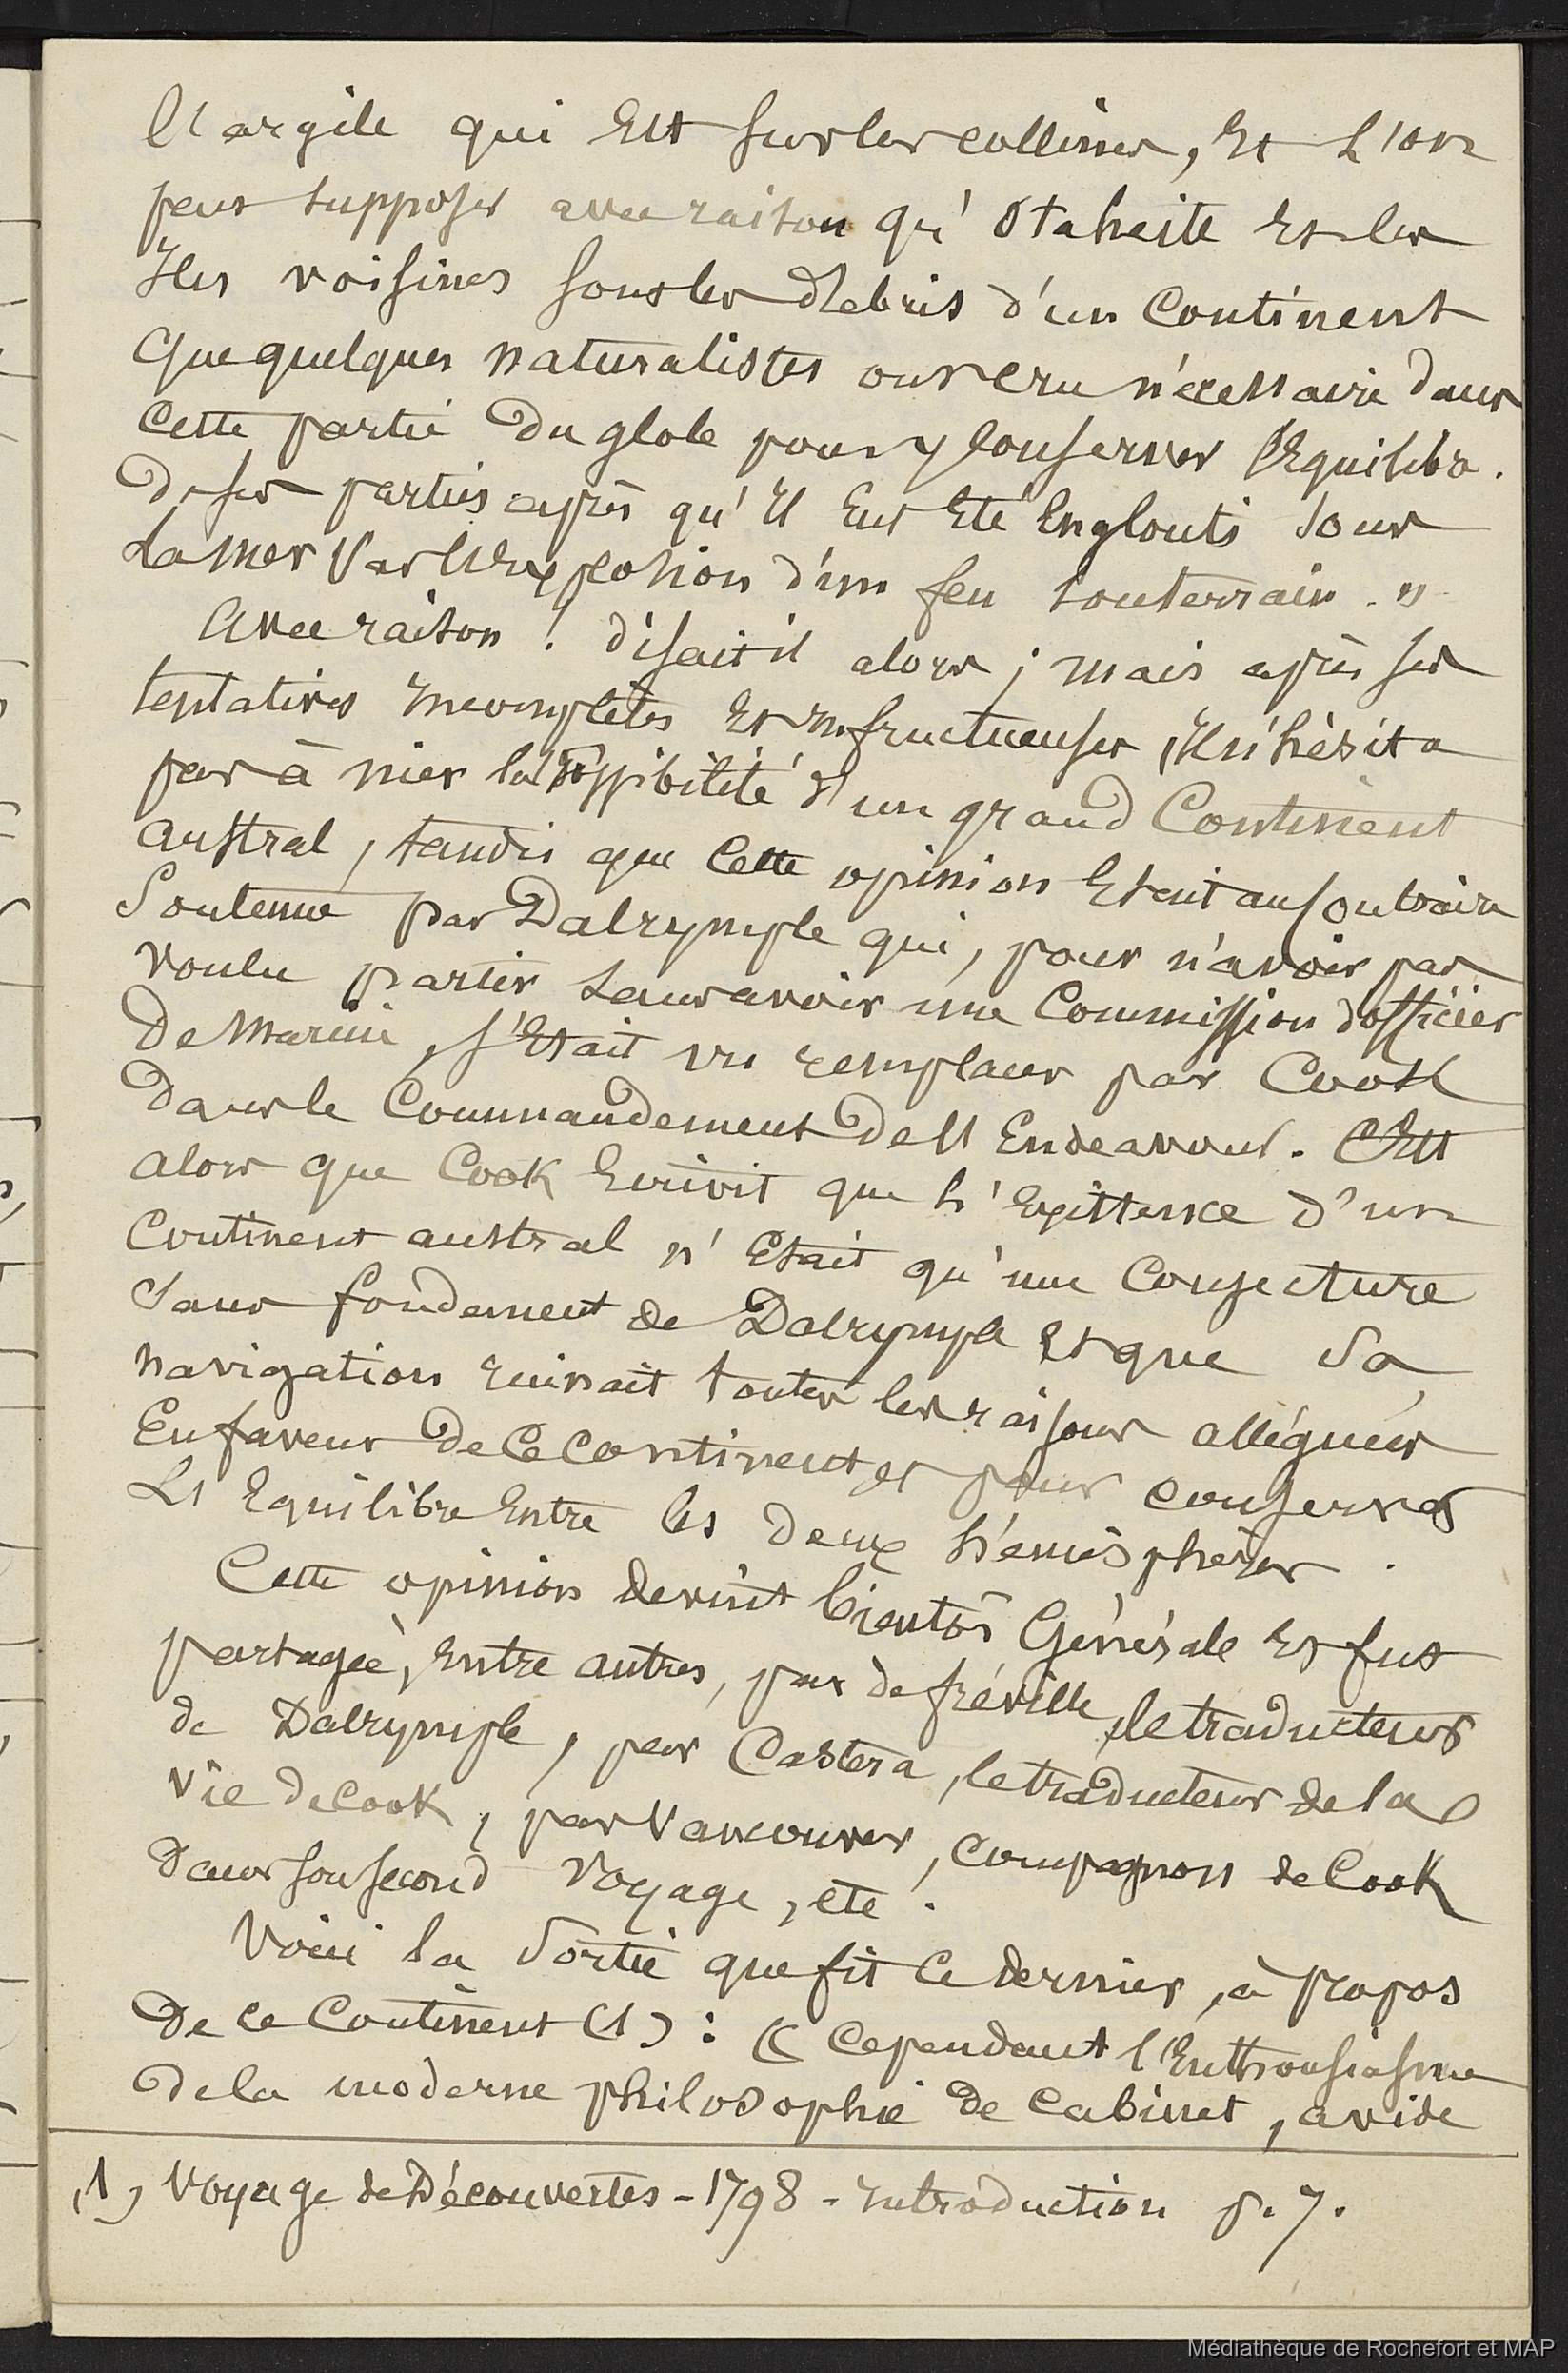 L'argile qui est sur les collines, et l'on
peut supposer avec raison qu'Otaheite et les
Iles voisines sont les débris d'un Continent
que quelques naturalistes ont cru nécessaire dans
cette partie du globe pour y conserver l'Equilibre.
de ses parties après qu'il eut été Englouti sous
La mer par l'Explosion d'un feu souterrain. »
Avec raison ! disait il alors ; mais après ses
tentatives incomplètes et infructueuses, il n'hésita
pas à nier la possibilité d'un grand Continent
austral, tandis que cette opinion Etait au Contraire
Soutenue par Dalrymple qui, pour n'avoir pas
voulu partir sans avoir une Commission d'officier
de Marine, s'Etait vu remplacer par Cook
dans le Commandement de l'Endeavour. C'Est
alors que Cook Ecrivit que l'Existence d'un
Continent austral n'Etait qu'une Conjecture
sans fondement de Dalrymple et que sa
navigation ruinait toutes les raisons alléguées
En faveur de ce Continent et pour conserver
L'Equilibre Entre les deux hémisphères.
Cette opinion devint bientôt Générale et fut
partagée, Entre autres, par de fréville, le traducteur
de Dalrymple, par Castera, le traducteur de la
vie de Cook, par Vancouver, Compagnon de Cook
dans son second Voyage, etc.
Voici la Sortie que fit ce dernier, à propos
de ce Continent (1) : « Cependant l'Enthousiasme
de la moderne philosophie de Cabinet, avide
(1) Voyage de Découvertes - 1798 - Introduction p. 7.
Médiathèque de Rochefort et MAP